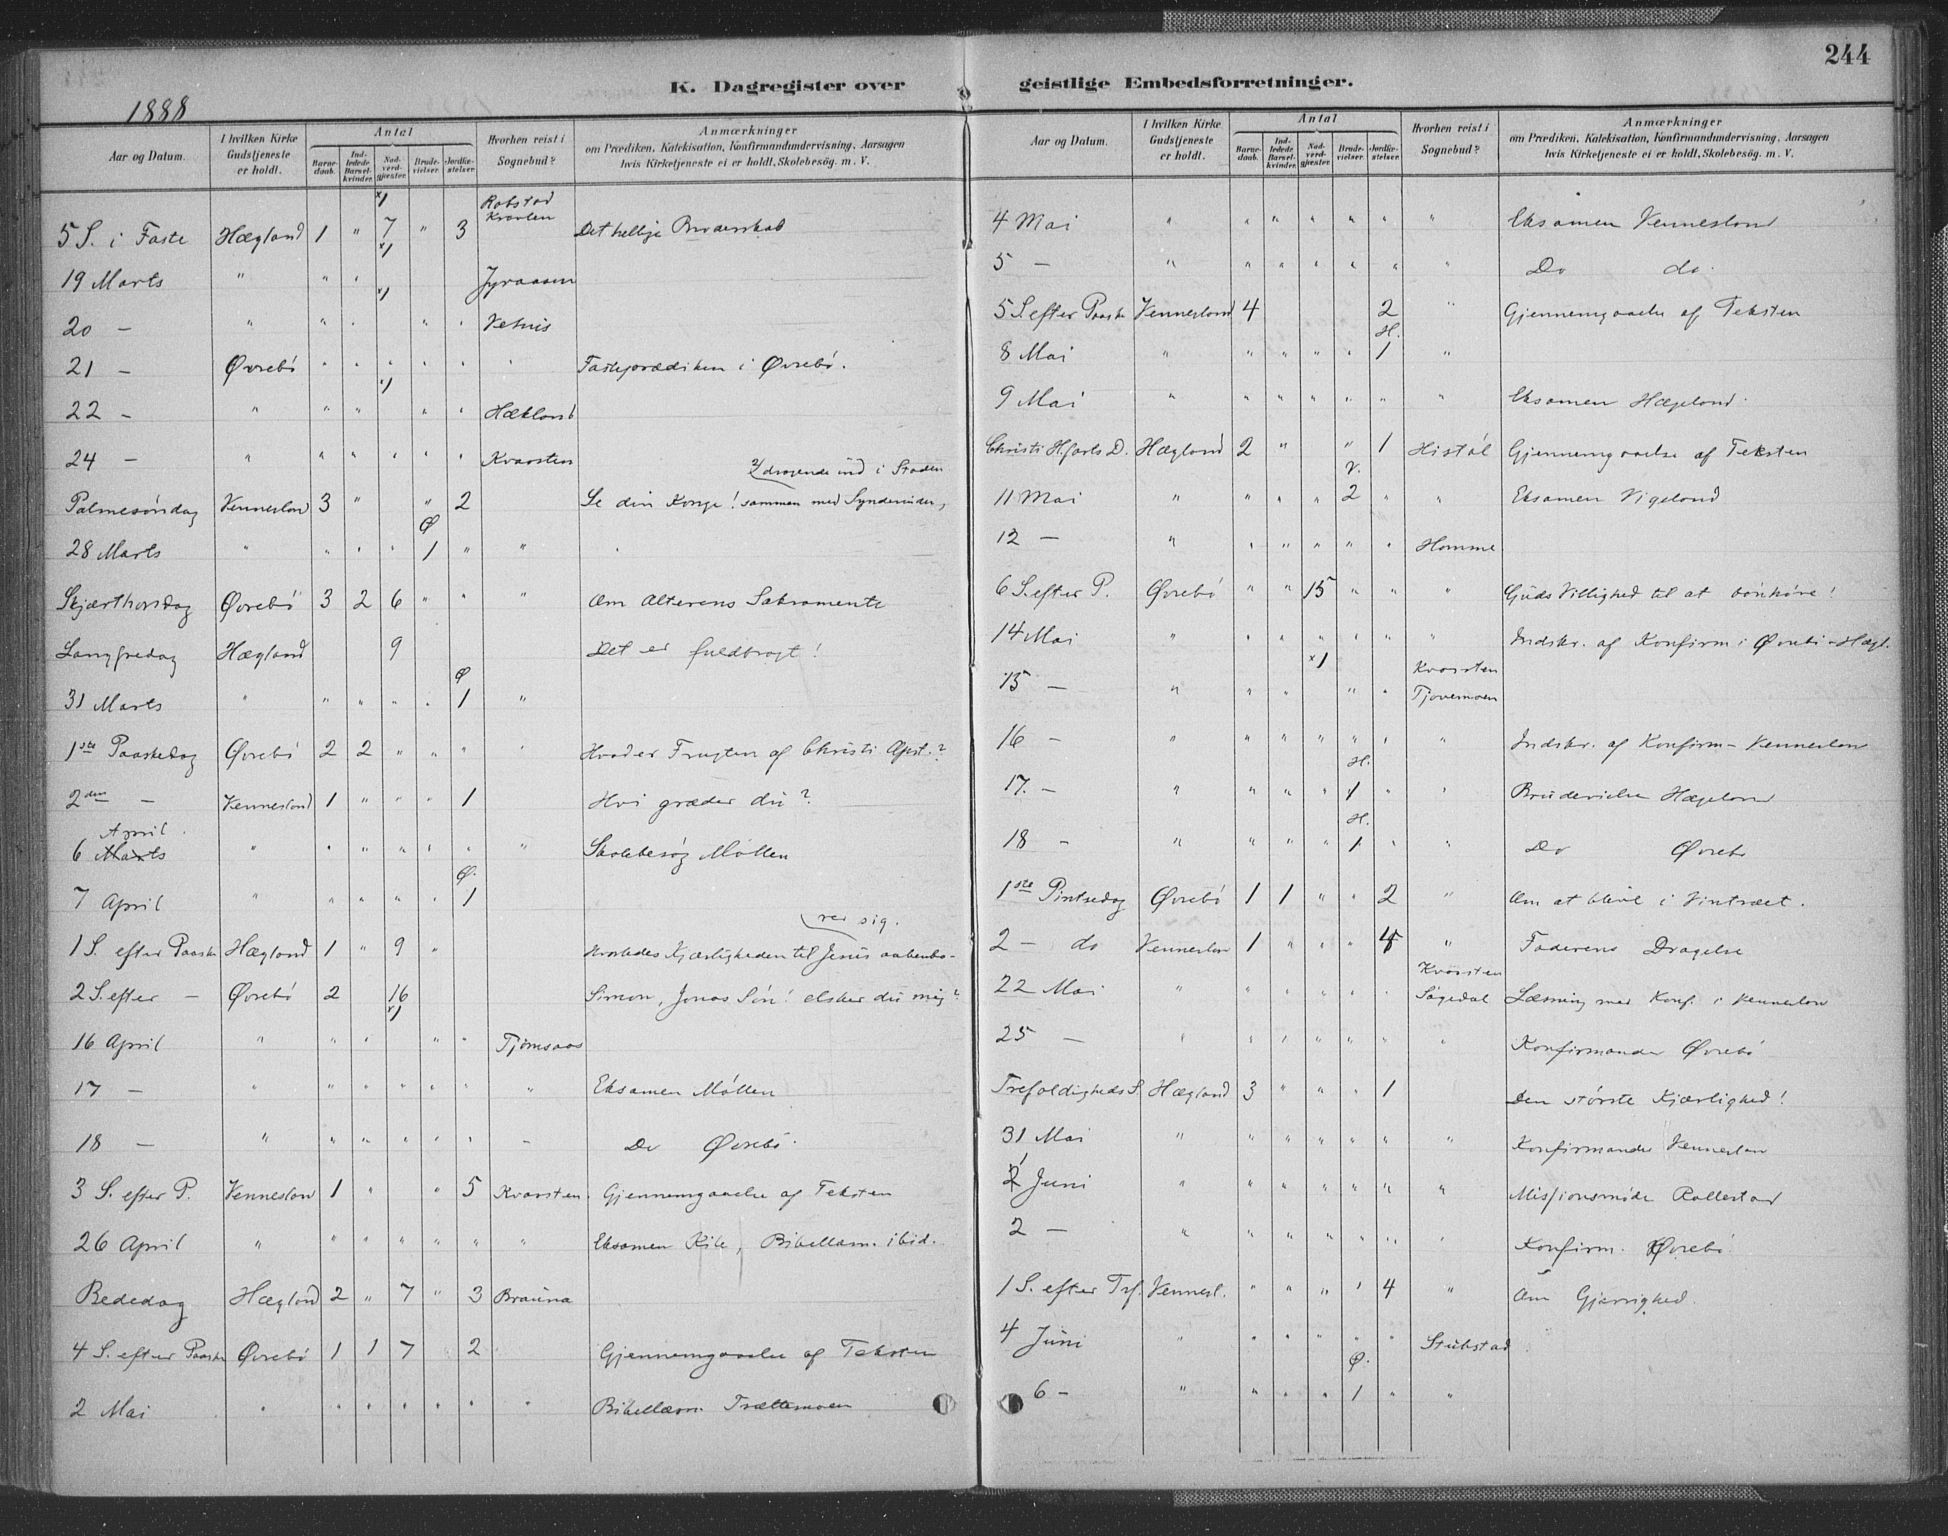 244
K. Dagregister over geistlige Embedsforretninger.
1888
Aar og Datum. I hvilken Kirke Gudstjeneste er holdt. Antal Barnedaab. Indledede Barselkvinder. Nadverdgjæster. Brudevielser. Jordfæstelser. Hvorhen reist i Sognebud? Anmærkninger om Prædiken, Katekisation, Konfirmandundervisning, Aarsagen hvis Kirketjeneste ei er holdt, Skolebesøg. m. V.
x1 Robstad
5 S. i Faste Hægland 1 " 7 " 3 Det hellige Broderskab
x1
19 Marts " " "
x1
20 — " " " " "
21 — Øvrebø " " " " " " Fasteprædiken i Øvrebø.
x1
22 — " " " " " Hæklond
24 — " " " " " " Kvarsten
dragende ind i Staden
Palmesøndag Venneslon 3 " " 2 Se din Konge! sammen med Synderinden,
Ø
28 Marts " " " " 1 " "
Skjærthorsdag Øvrebø 3 2 6 " " " Om Alterens Sakramente
Langfredag Hægland 9 Det er fuldbragt!
Ø
31 Marts " " " " " 1 "
1ste Paaskedag Øvrebø 2 2 " " " " Hvad er Frugten af Christi Opst.?
2den — Venneslond 1 " " " 1 Hvi græder du?
April
6 Marts " " " " " " " Skolebesøg Mollen
Ø.
7 April " " " " " 1
rer sig.
1 S. efter Paaske Hægland 1 " 9 " Hvorledes Kjærligheden til Jesus aabenba-
2 S. efter — Øvrebø 2 16 Simon, Jonas Søn! elsker du mig?
x1
16 April " " " " " Tjomsaas
17 — " " " " " " " Eksamen Mollen
18 — " " " " " " " Do Øvrebø.
3 S. efter P. Venneslon 1 " " 5 Kvarsten. Gjennemgaaelse af Teksten
26 April " " " " " " " Eksamen Kile, Bibellæsn. ibid.
Bededag Hæglond 2 " 7 " 3 Brauna
4 S. efter Paaske Øvrebø 1 1 7 " 2 Gjennemgaaelse af Teksten
2 Mai " " " " " " " Bibellæsn. Trættemoen
Aar og Datum. I hvilken Kirke Gudstjeneste er holdt. Antal Barnedaab. Indledede Barselkvinder. Nadverdgjæster. Brudevielser. Jordfæstelser. Hvorhen reist i Sognebud? Anmærkninger om Prædiken, Katekisation, Konfirmandundervisning, Aarsagen hvis Kirketjeneste ei er holdt, Skolebesøg. m. V.
4 Mai " " " " " " " Eksamen Venneslond
5 — " " " " " " " Do do.
5 S. efter Paaske Venneslond 4 2 " Gjennemgaaelse af Teksten
H.
8 Mai " " " " " 1 "
9 Mai " " " " " " " Eksamen Hægelond.
Christi H.farts D. Hæglond 2 " " 1 Gjennemgaaelse af Teksten
V.
11 Mai " " " " 2 " " Eksamen Vigelond
12 — " " " " " " Homme
6 S. efter P. Øvrebø " " 15 " " " Guds Villighed til at bønhøre!
14 Mai " " " " " " " Indskr. af Konfirm i Øvrebø - Hægl.
x1 Kvarsten
15 — " " " " " Tjovemoen
16 — " " " " " " " Indskr. af Konfirm - Venneslon
H.
17. — " " " " 1 " " Brudevielse Hægelond
H.
18 — " " " " 1 " " Do Øvrebø
1ste Pintsedag Øvrebø 1 1 " " 2 " Om at blive i Vintræet.
2 — do Venneslon 1 " " " 4 " Faderens Dragelse
Kvarsten
22 Mai " " " " " " Søgedal Læsning med Konf. i Venneslon
25 — " " " " " " " Konfirmander Øvrebø
Trefoldigheds S. Hægland 3 " " " 1 Den største Kjærlighed!
31 Mai " " " " " " " Konfirmander Venneslon
1 Juni " " " " " " " Missionsmøde Rallestad
2 — " " " " " " " Konfirm. Øvrebø
1 S. efter Trf. Vennesl. " " " " 4 " Om Gjerrighed.
4 Juni " " " " " " Stubstad
Ø.
6 — " " " " 1 " "